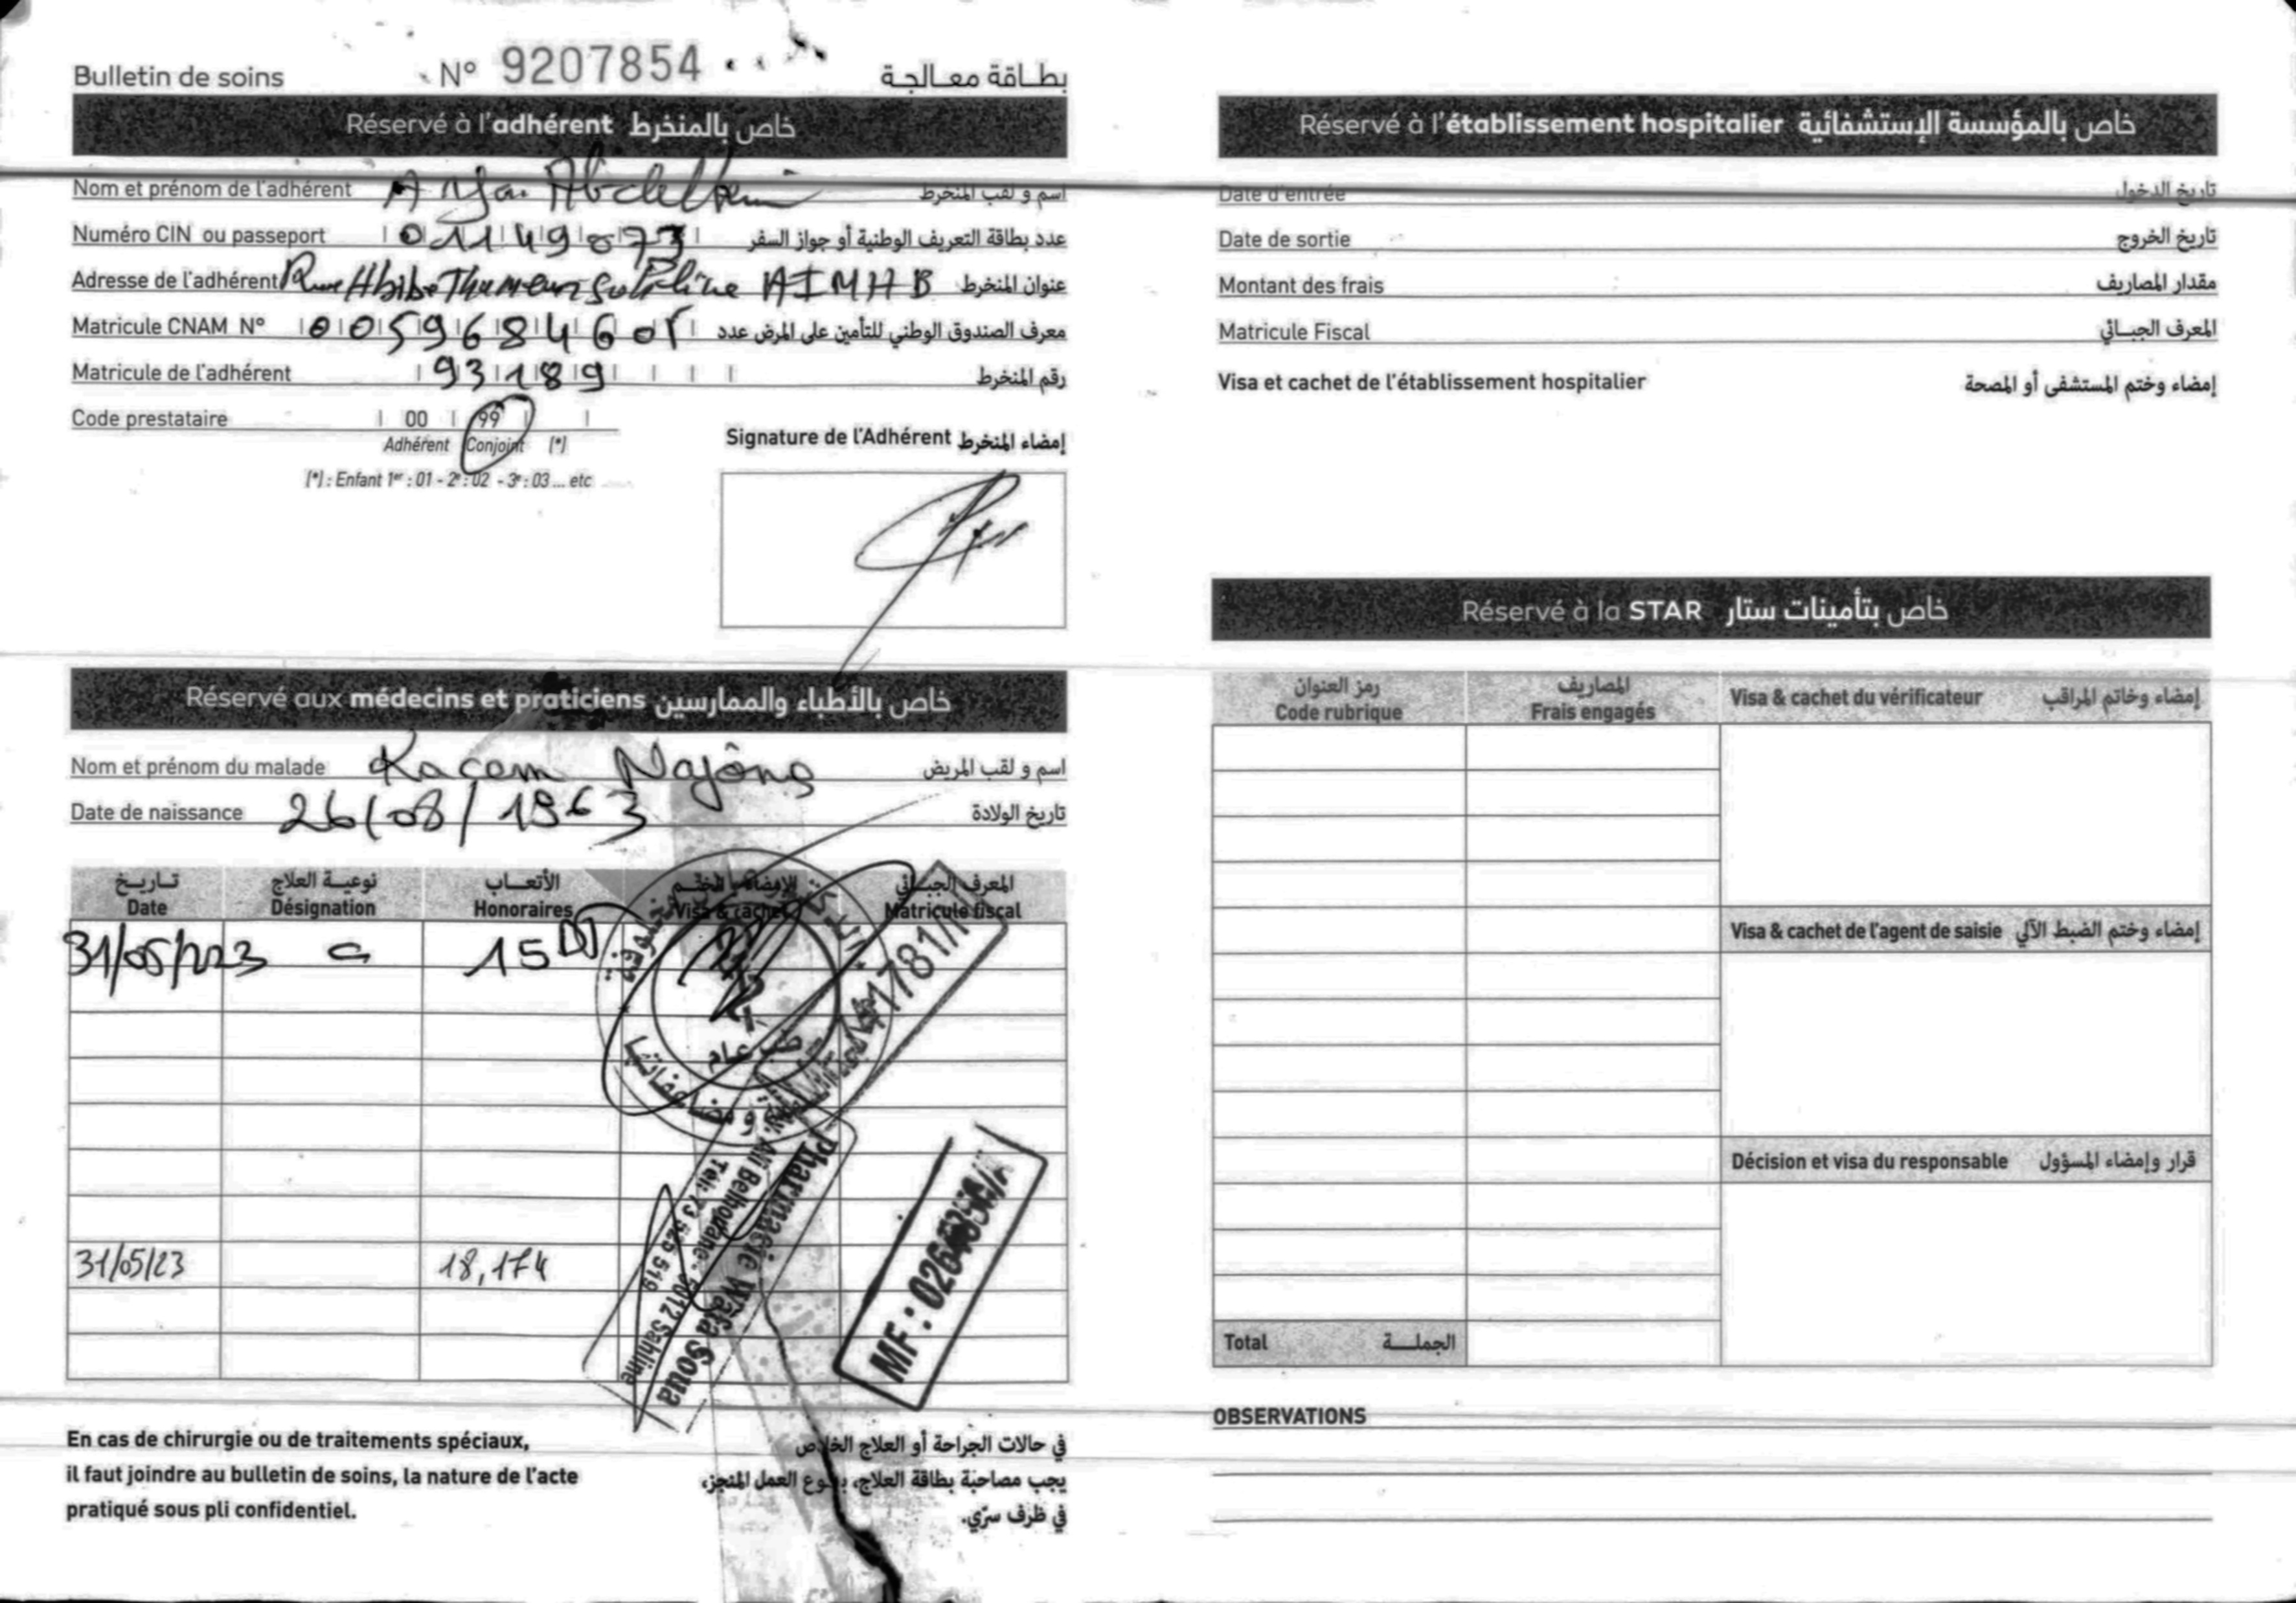 Bulletin de soins N° 9207854 بطاقة معالجة
Réservé à l'adhérent خاص بالمنخرط
Nom et prénom de l'adhérent اسم و لقب المنخرط
Numéro CIN ou passeport 01149073 عدد بطاقة التعريف الوطنية أو جواز السفر
Adresse de l'adhérent Rue Hbib Thameur عنوان المنخرط
Matricule CNAM N° معرف الصندوق الوطني للتأمين على المرض عدد
Matricule de l'adhérent 93189 رقم المنخرط
Code prestataire 00 99
Adhérent Conjoint (*)
(*) : Enfant 1er : 01 - 2e : 02 - 3e : 03 ... etc
Signature de l'Adhérent إمضاء المنخرط
Réservé aux médecins et praticiens خاص بالأطباء والممارسين
Nom et prénom du malade Kacem اسم و لقب المريض
Date de naissance 26/08/1963 تاريخ الولادة
تاريخ نوعية العلاج الأتعاب الإمضاء و الختم المعرف الجبائي
Date Désignation Honoraires Visa & cachet Matricule fiscal
31/05/2023 C 15 DT
طب عام
31/05/23 18,174
Pharmacie Wafa Soua
Ali Belhouane - 5012 Sahline
Tél: 73 525 519
MF :
En cas de chirurgie ou de traitements spéciaux,
il faut joindre au bulletin de soins, la nature de l'acte
pratiqué sous pli confidentiel.
في حالات الجراحة أو العلاج الخاص
يجب مصاحبة بطاقة العلاج، بنوع العمل المنجز،
في ظرف سرّي.
Réservé à l'établissement hospitalier خاص بالمؤسسة الإستشفائية
Date d'entrée تاريخ الدخول
Date de sortie تاريخ الخروج
Montant des frais مقدار المصاريف
Matricule Fiscal المعرف الجبائي
Visa et cachet de l'établissement hospitalier إمضاء وختم المستشفى أو المصحة
Réservé à la STAR خاص بتأمينات ستار
رمز العنوان المصاريف
Code rubrique Frais engagés Visa & cachet du vérificateur إمضاء وخاتم المراقب
Visa & cachet de l'agent de saisie إمضاء وختم الضبط الآلي
Décision et visa du responsable قرار وإمضاء المسؤول
Total الجملة
OBSERVATIONS